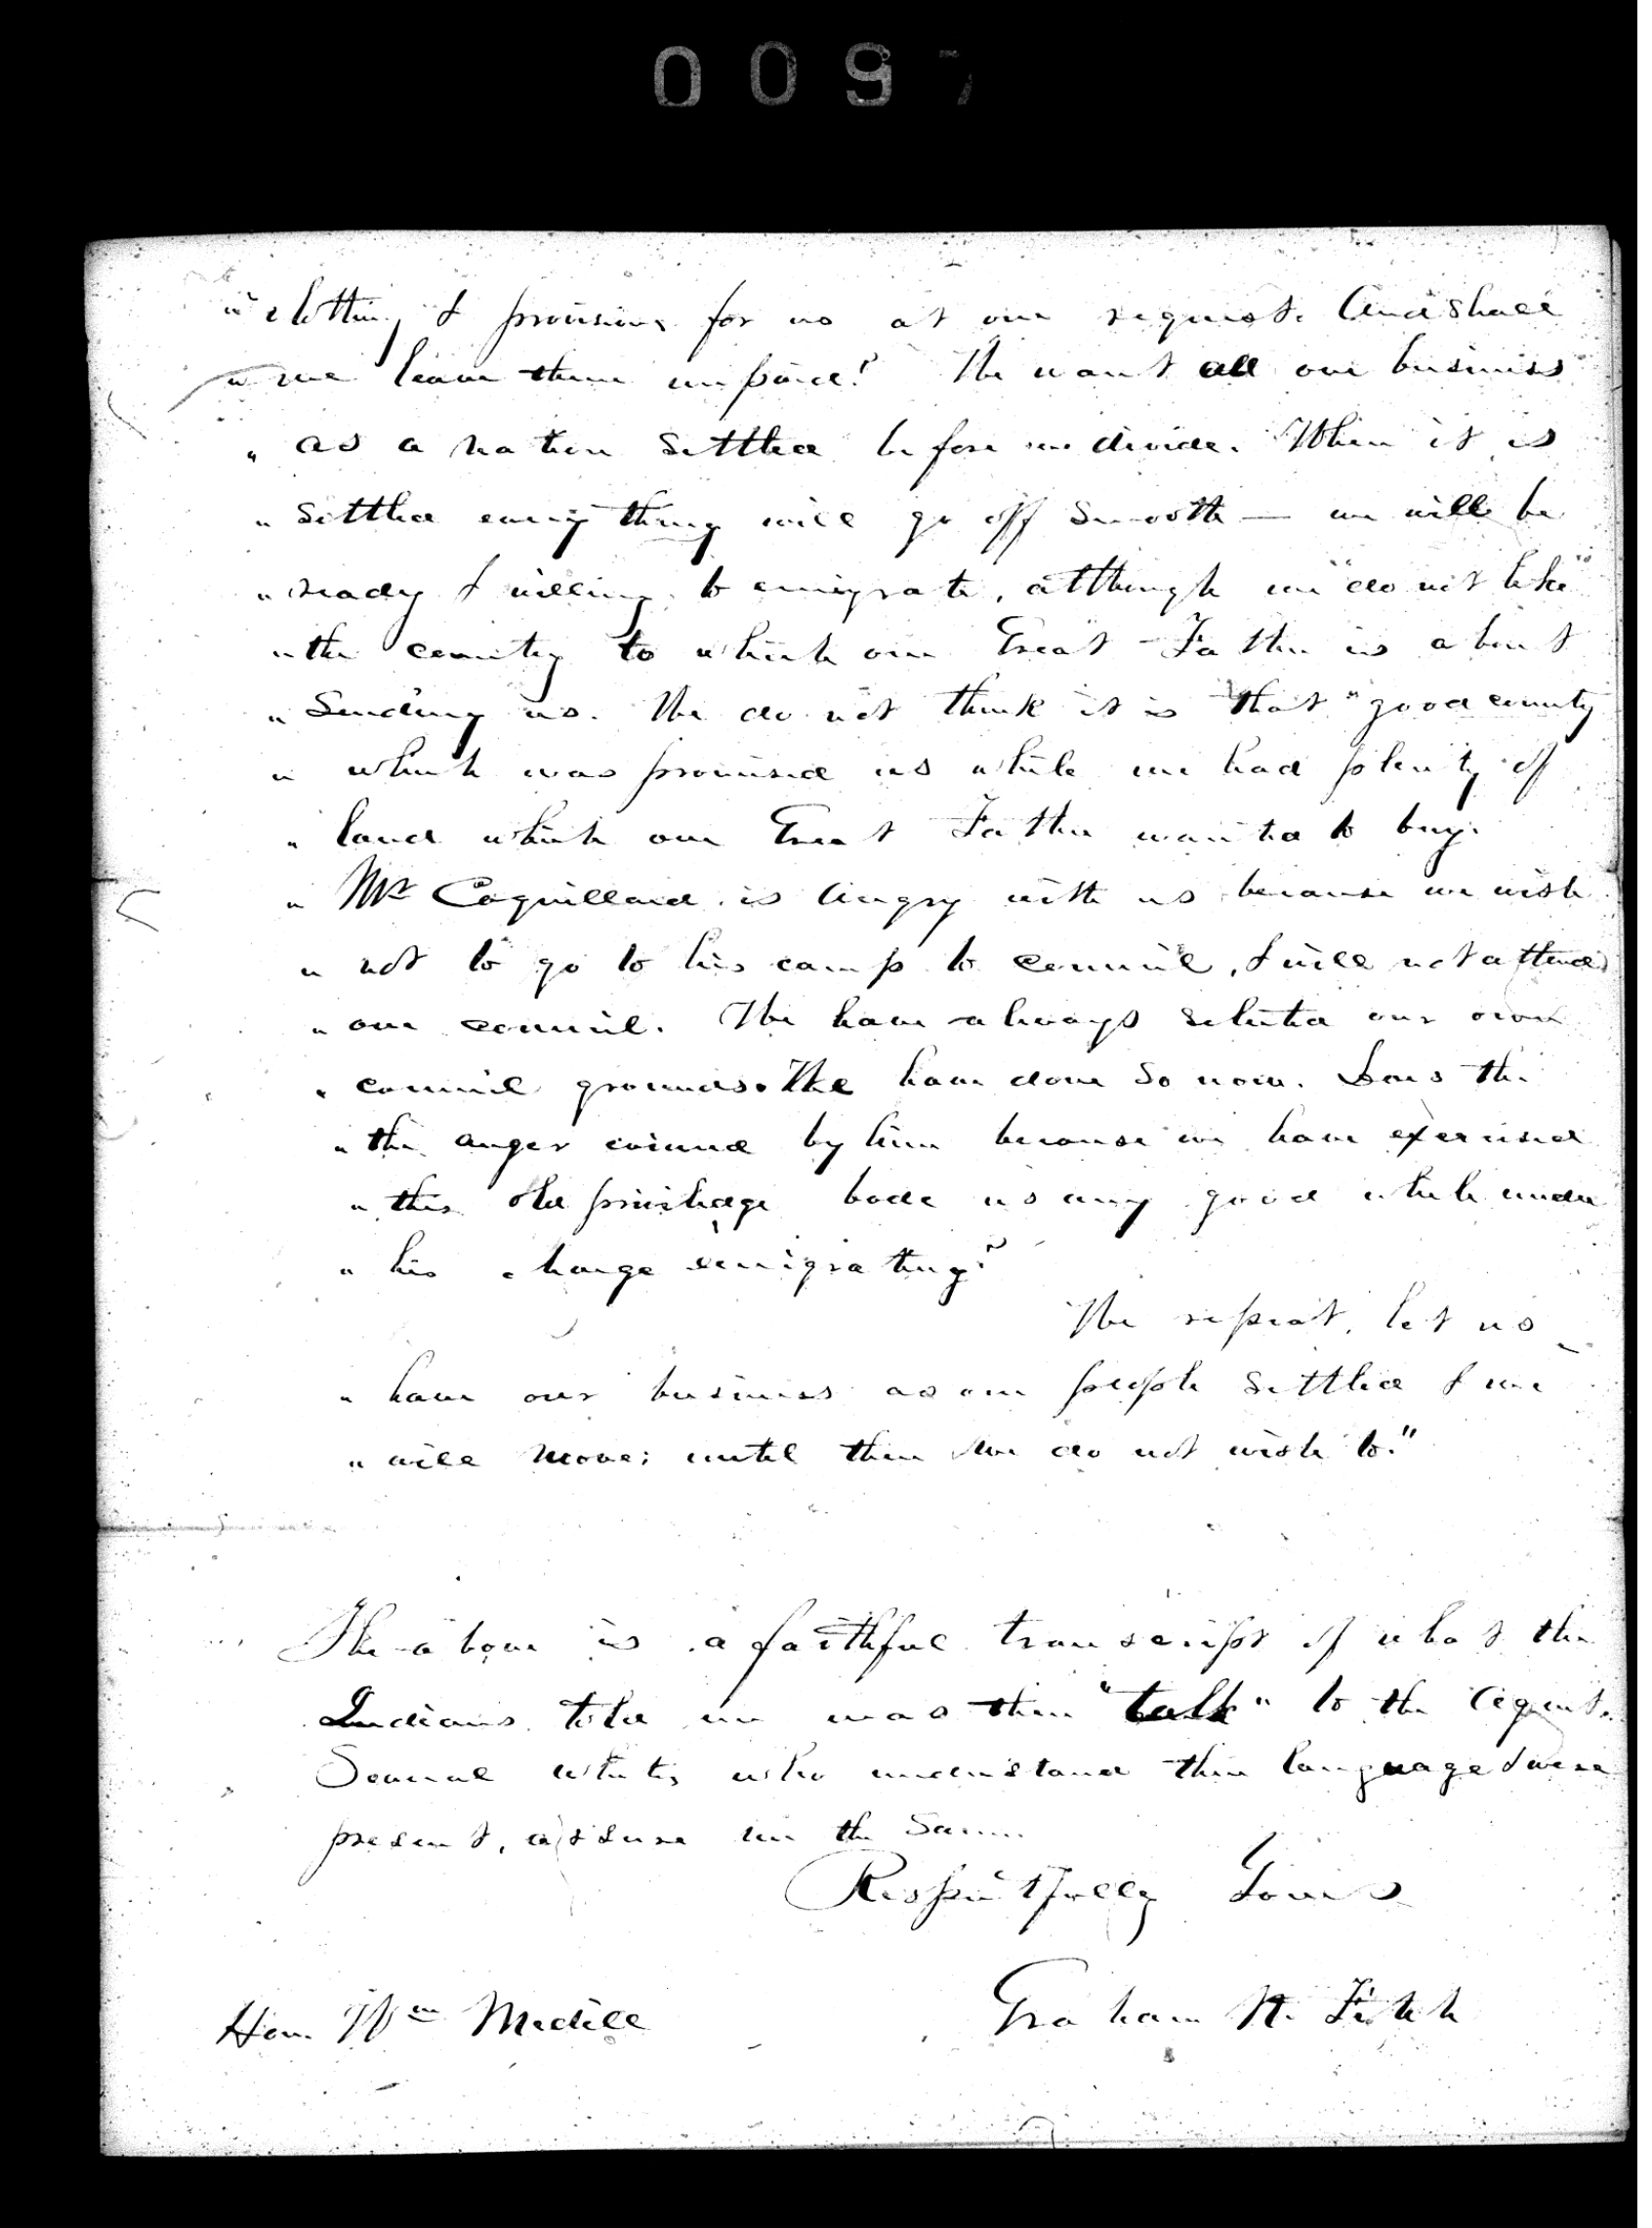 0097
" clothing & provisions for us at our request. And shall
" we leave them unpaid? We want all our business
" as a nation settled before we divide. When it is
" settled every thing will go off smooth — we will be
" ready & willing to emigrate, although we do not like
" the country to which our Great Father is about
" sending us. We do not think it is that "good country
" which was promised us while we had plenty of
" land which our Great Father wanted to buy.
" Mr Coquillard is angry with us because we wish
" not to go to his camp to council, & will not attend
" our council. We have always selected our own
" council grounds. We have done so now. Does the
" the anger evinced by him because we have exercised
" this old priviledge bode us any good while under
" his charge emigrating?
We repeat, let us
" have our business as our people settled & we
" will move; until then we do not wish to."
The above is a faithful transcript of what the
Indians told me was their "talk" to the Agent.
Several whites, who understand their language & were
present, assure me the same.
Respectfully Yours
Graham N. Fitch
Hon. Wm Medill